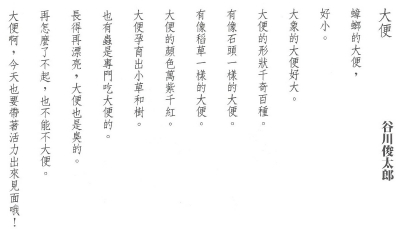 大便
谷川俊太郎
蟑螂的大便，
好小。
大象的大便好大。
大便的形狀千奇百種。
有像石頭一樣的大便。
有像稻草一樣的大便。
大便的顏色萬紫千紅。
大便孕育出小草和樹。
也有蟲是專門吃大便的。
長得再漂亮，大便也是臭的。
再怎麼了不起，也不能不大便。
大便啊，今天也要帶著活力出來見面哦！